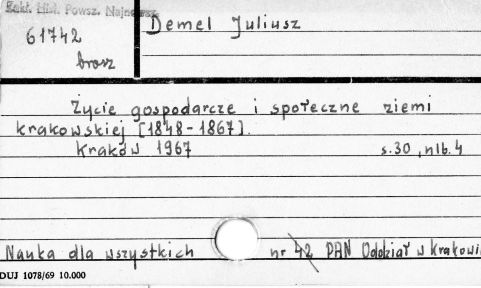 Zakł. Hist. Powsz. Najnowsz.
61742
brosz
Demel Juliusz
Życie gospodarcze i społeczne ziemi
krakowskiej [1848-1867].
Kraków 1967 s.30, nlb. 4
Nauka dla wszystkich nr 42 PAN Oddział w Krakowi
DUJ 1078/69 10.000